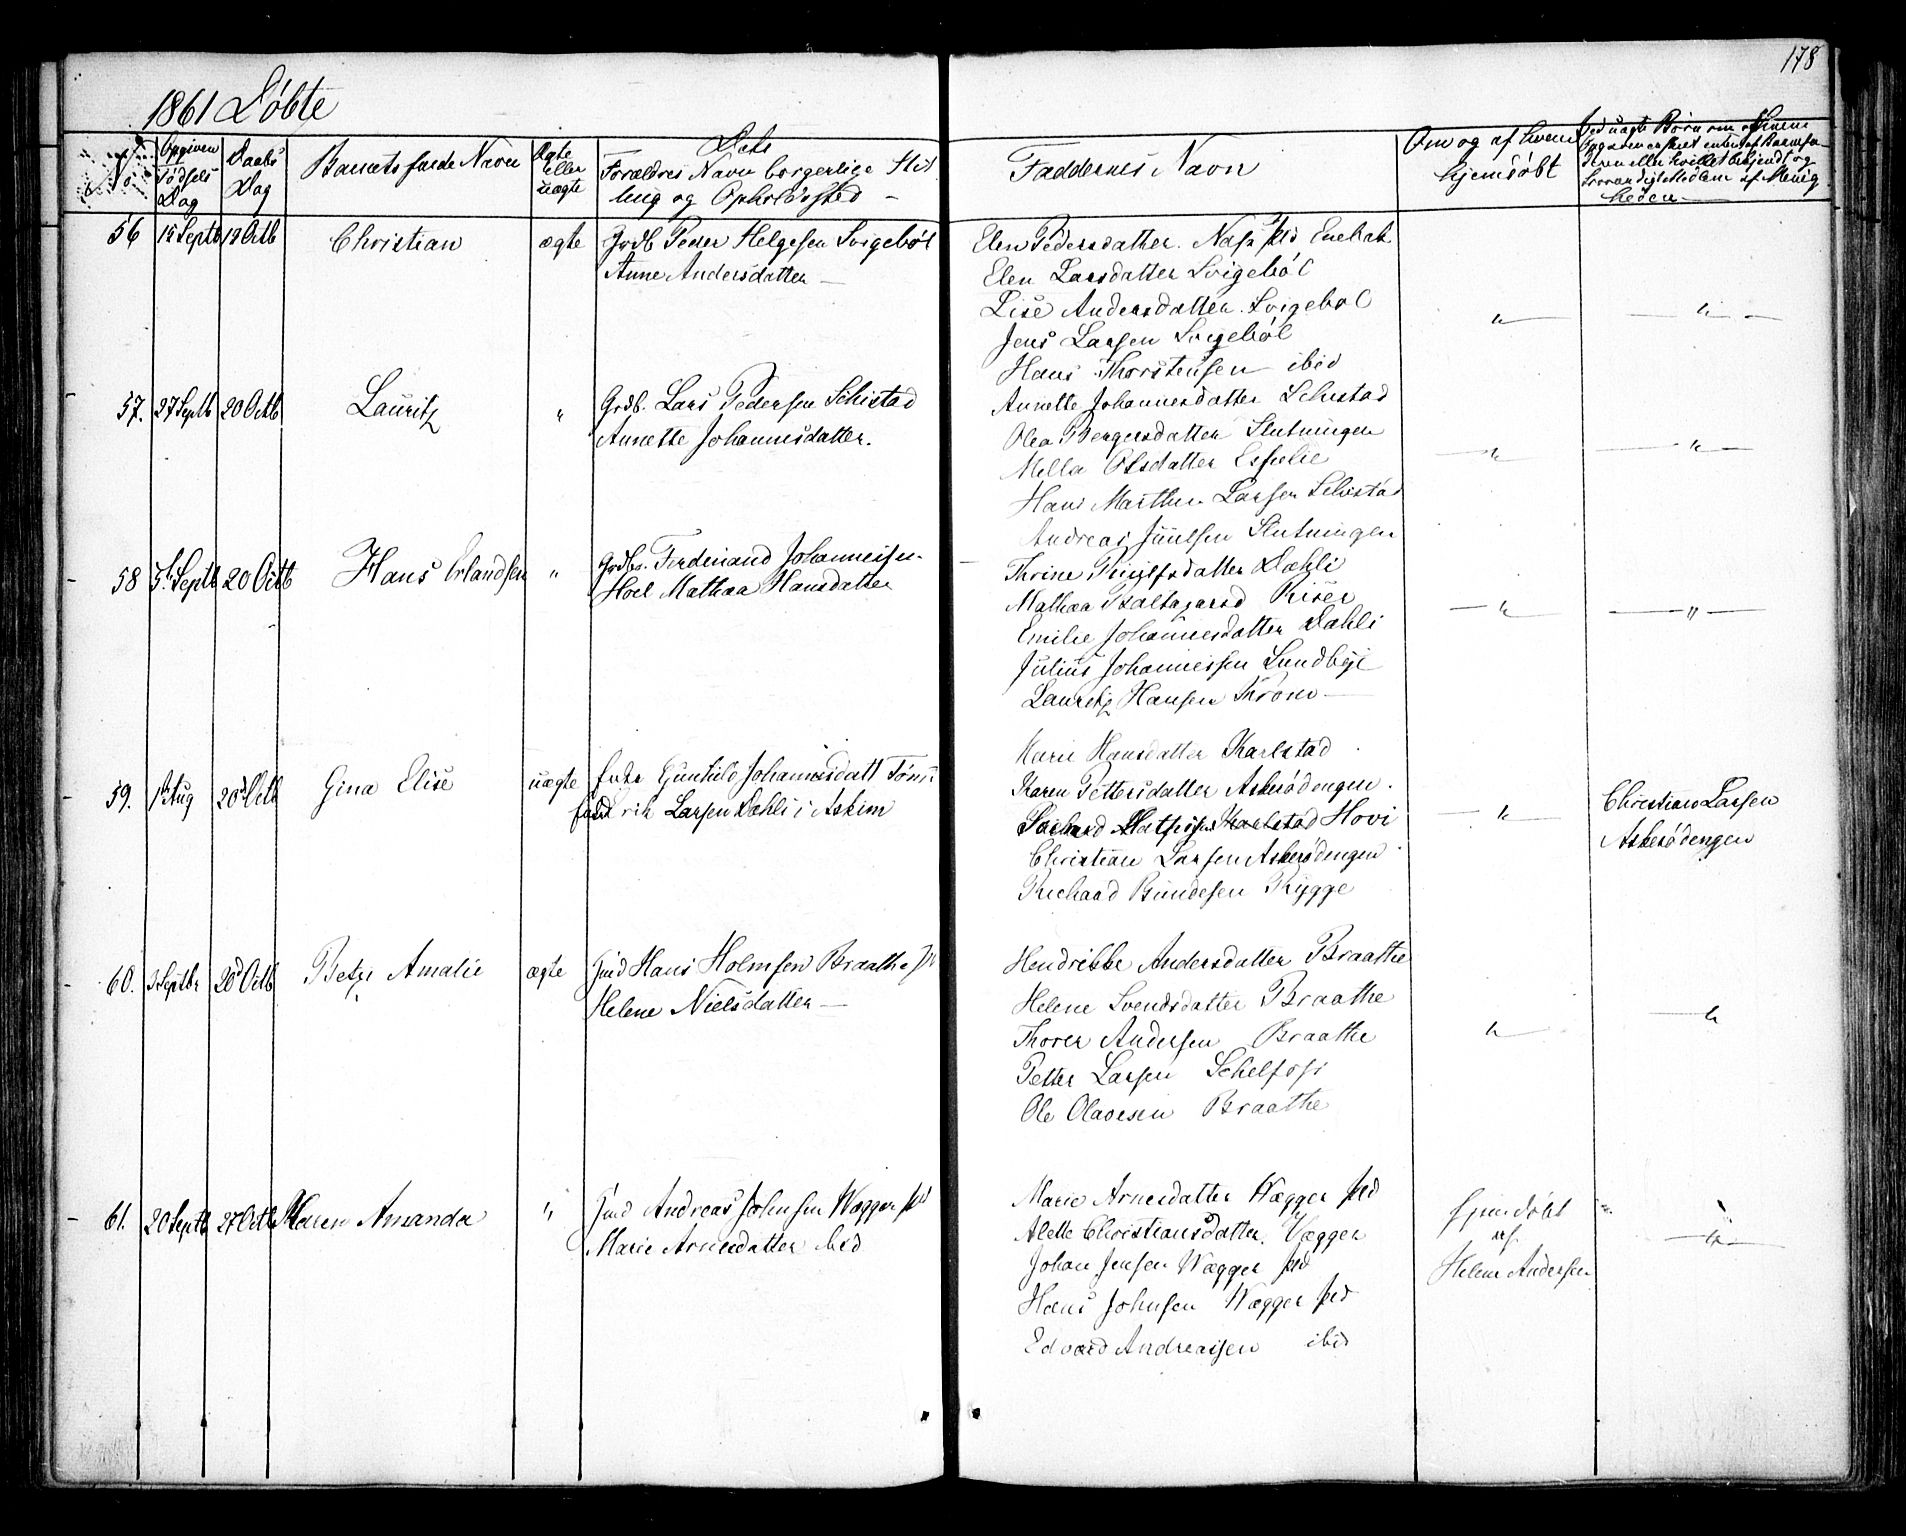 178
1861 Døbte
No
Opgiven Fødsels Dag
Daabs Dag
Barnets fulde Navn
Ægte eller uægte
Dets Forældres Navn borgerlige Stilling og Opholdsted
Faddernes Navn
Om og af hvem hjemdøbt
56 15 Septb 19 Octb Christian ægte Grdb Peder Helgesen Svigebøl
Anne Andersdatter
Elen Pedersdatter. Enebak
Elen Larsdatter Svigebøl
Lise Andersdatter Svigebøl
Jens Larsen Svigebøl
Hans Thorstensen ibid
57. 27 Septb 20 Octb Lauritz " Grdb. Lars Pedersen Schistad
Annette Johannesdatter.
Annette Johannesdatter Schistad
Olea Bergersdatter Slutningen
Mella Olsdatter Espelie
Hans Marthin Larsen Schistad
Andreas Juulsen Slutningen
58 5 Septb 20 Octb Hans Erlandsen " Grdbr. Ferdinand Johannesen
Hoel Mathea Hansdatter
Thrine Dæhli
Mathea Baltazarsd Riser
Emilie Johannesdatter Dahli
Julius Johannessen Lundbye
Lauritz Hansen Throne
59. 1 Aug 20 Octb Gina Elise uægte Gunhild Johannesdatt
Larsen Dæhli i Askim
Karie Hansdatter Karlstad
Karen Pettersdatter Askerødengen
Karlstad Hovi
Christian Larsen Askerødengen
Richard Bundesen Rygge
Christian Larsen
Askerødengen
60. 3 Septbr 20 Octb Betzi Amalie ægte Gmd Hans Holmsen Braathe
Helene Nielsdatter
Hendrikke Andersdatter Braathe
Helene Svendsdatter Braathe
Thorer Andersen Braathe
Petter Larsen Schelfos
Ole Olavesen Braathe
61. 20 Septb 27 Octb Karen Amanda " Gmd Andreas Johnsen Wægger
Marie Arnesdatter ibid
Marie Arnesdatter Wægger
Alette Christiansdatter Vægger
Johan Jensen Wægger
Hans Johnsen Wægger
Edvard Andreassen ibid
hjemdøbt
af
Helene Andersen